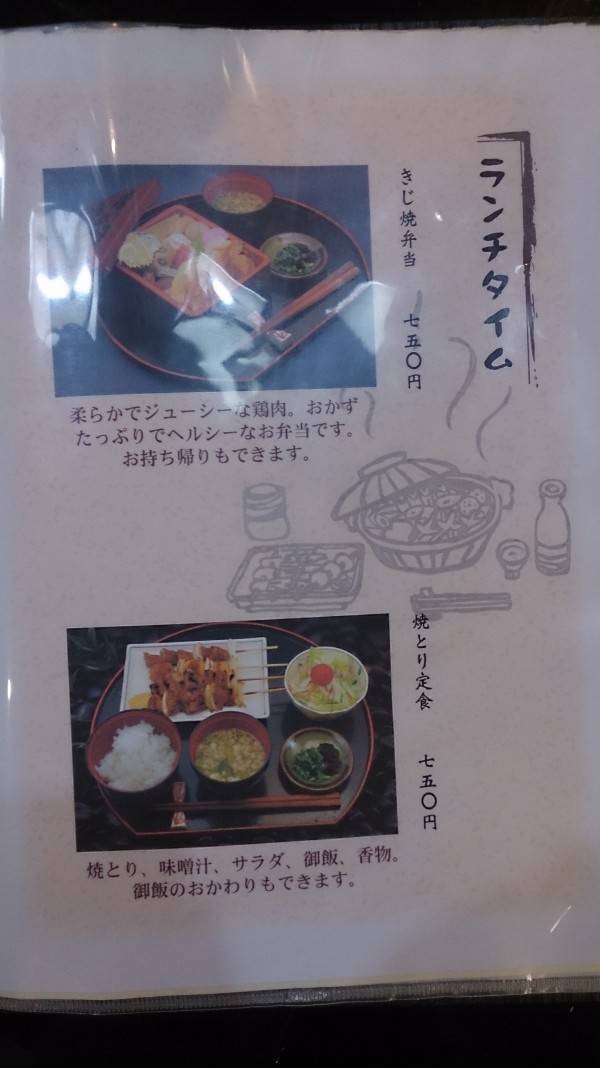 ランチタイム
きじ焼弁当 七五〇円
柔らかでジューシーな鶏肉。おかず
たっぷりでヘルシーなお弁当です。
お持ち帰りもできます。
焼とり定食 七五〇円
焼とり、味噌汁、サラダ、御飯、香物。
御飯のおかわりもできます。